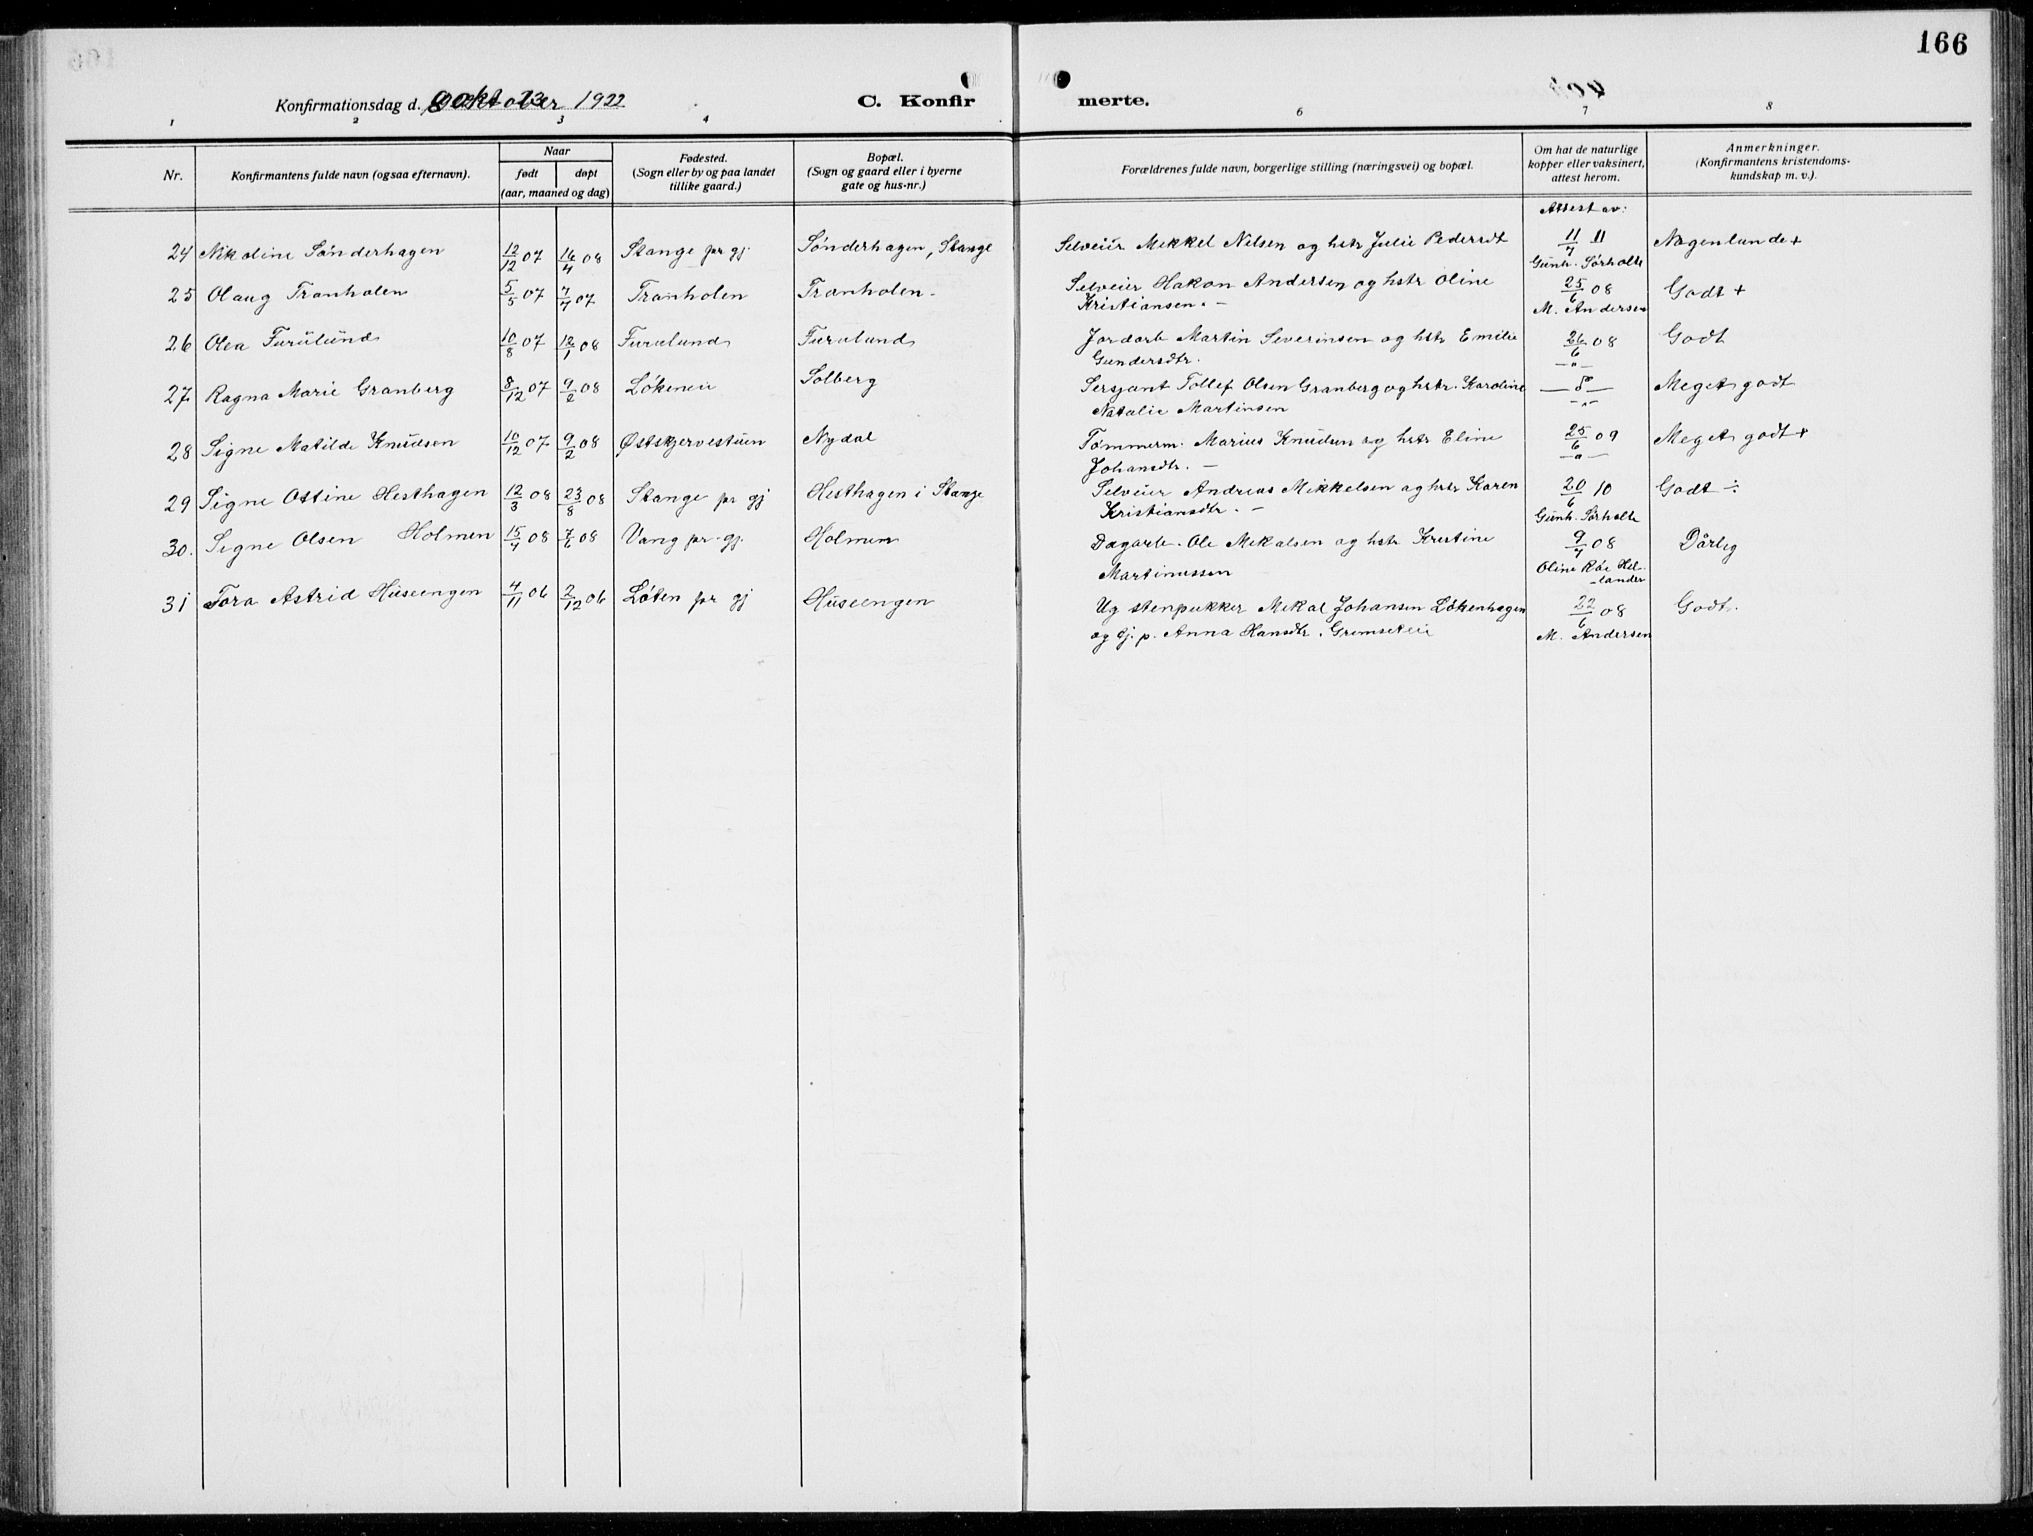 166
Konfirmationsdag d. oktober 1922
C. Konfirmerte.
1 2 3 4 6 7 8
Nr.
Konfirmantens fulde navn (ogsaa efternavn).
Naar
født døpt
(aar, maaned og dag)
Fødested.
(Sogn eller by og paa landet
tillike gaard.)
Bopæl.
(Sogn og gaard eller i byerne
gate og hus-nr.)
Forældrenes fulde navn, borgerlige stilling (næringsvei) og bopæl.
Om hat de naturlige
kopper eller vaksinert,
attest herom.
Anmerkninger.
(Konfirmantens kristendoms-
kundskap m. v.).
Attest av:
24 Nikoline Sønderhagen 12/12 07 16/4 08 Stange pr gj. Sønderhagen, Stange Selveier Mekkel Nilsen og hstr Julie Pedersdt 11/7 11 Nogenlunde+
Gunh. Sørholte
25 Olaug Tranholen 5/5 07 7/7 07 Tranholen Tranholen - Selveier Hakon Andersen og hstr Oline 25/6 08 Godt +
Kristiansen. - M. Andersen
26 Olea Furulund 10/8 07 12/1 08 Furulund Furulund Jordarb Martin Severinsen og hstr Emilie 26/6 08 Godt
Gundersdtr. -"-
27 Ragna Marie Granberg 8/12 07 9/2 08 Løkeneie Solberg Sersjant Tollef Olsen Granberg og hstr. Karoline Meget godt
Natalie Martinsen -"-
28 Signe Matilde Knudsen 10/12 07 9/2 08 Østskjervestuen Nydal Tømmerm. Marius Knudsen og hstr Eline 25/6 09 Meget godt +
Johansdtr. - -"-
29 Signe Ostine Hesthagen 12/3 08 23/8 08 Stange pr gj Hesthagen i Stange Selveier Andreas Mikkelsen og hstr Karen 20/6 10 Godt ÷
Kristiansdtr. - Gunh. Sørholte
30. Signe Olsen Holmen 15/4 08 7/6 08 Vang pr. gj. Holmen Dagarb. Ole Mekalsen og hstr Kristine 9/7 08 Dårlig
Martinussen Oline Röe Hel-
-lander
31 Tora Astrid Huseengen 4/11 06 2/12 06 Løten pr gj Huseengen Ug stenpukker Mekal Johansen Løkenhagen 22/6 08 Godt.
og Gj. p. Anna Hansdtr. Grimseteie M. Andersen